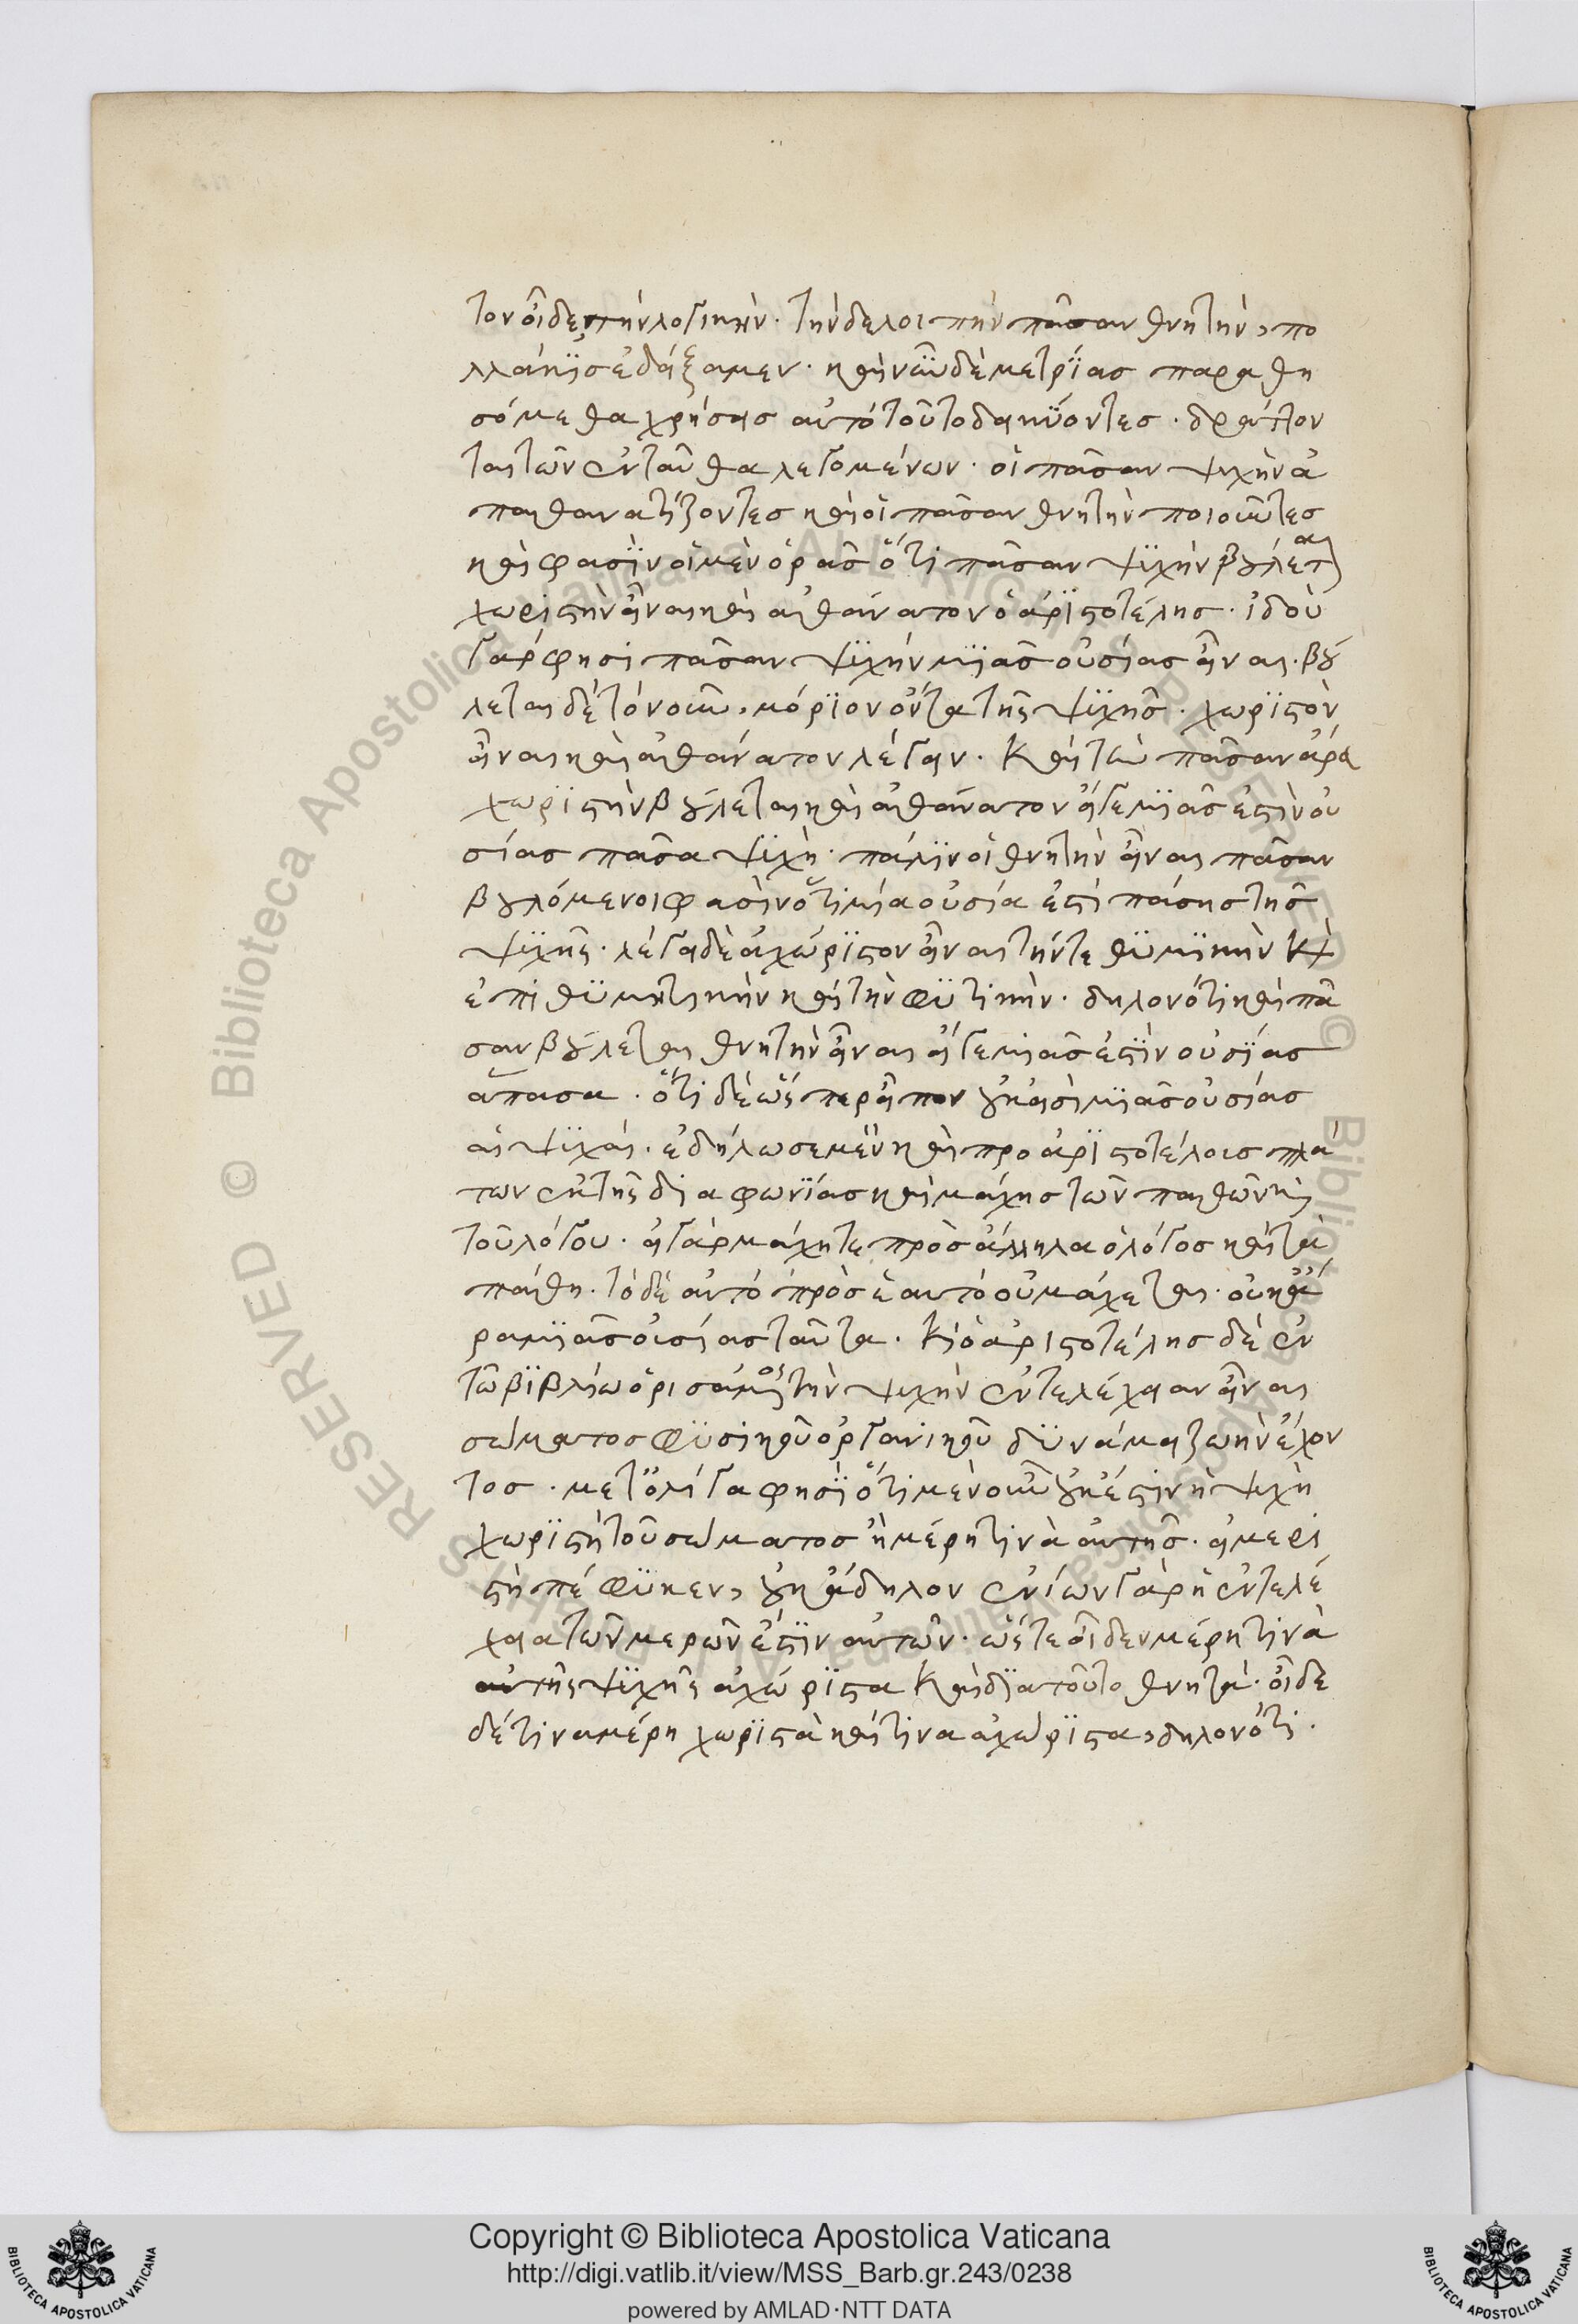 τον οἶδε τὴν λογικήν· τὴν δὲ λοιπὴν πᾶσαν θνητὴν, πο
λλάκϊς ἐδείξαμεν· καὶ νῦν δὲ μετρΐας παραθη
σόμεθα χρήσεις αὐτὸ τοῦτο δεικνΰοντες·
ται τῶν ἐνταῦθα λεγομένων· οἱ πᾶσαν ψυχὴν ἀ
παθανατίζοντες καὶ οἱ πᾶσαν θνητὴν ποιοῦντες
καὶ φασὶν οἱ μὲν ὁρᾶς ὅτι πᾶσαν ψϋχὴν βούλεται
χωριστὴν εἶναι καὶ ἀθάνατον ὁ ἀρϊστοτέλης· ἰδοὺ
γάρ φησι πᾶσαν ψϋχὴν μϊᾶς οὐσίας εἶναι· βού
λεται δὲ τὸν νοῦν, μόρϊον ὄντα τῆς ψϋχῆς· χωρϊστὸν
εἶναι καὶ ἀθάνατον λέγειν· Καὶ τὴν πᾶσαν ἄρα
χωρϊστὴν βούλεται καὶ ἀθάνατον εἴγε μϊᾶς ἐστὶν οὐ
σίας πᾶσα ψϋχή· πάλϊν οἱ θνητὴν εἶναι πᾶσαν
βουλόμενοι φασὶν ὅτι μία οὐσία ἐστὶ πάσης τῆς
ψϋχῆς· λέγει δὲ ἀχώρϊστον εἶναι τήντε θϋμϊκὴν καὶ
ἐπιθϋμητικὴν καὶ τὴν φϋτικήν· δηλονότι καὶ πᾶ
σαν βούλεται θνητὴν εἶναι εἴγε μιᾶς ἐστϊν οὐσΐας
ἅπασα· ὅτι δὲ ὥσπερ εἶπον οὔκ εἰσι μϊᾶς οὐσίας
αἱ ψϋχαί· ἐδήλωσε μὲν καὶ προ ἀρϊστοτέλους πλά
των ἐκ τῆς διαφωνΐας καὶ μάχης τῶν παθῶν καὶ
τοῦ λόγου· εἰ γὰρ μάχηται πρὸς ἄλληλα ὁ λόγος καὶ τὰ
πάθη· τὸ δὲ αὐτὸ πρὸς ἑαυτὸ οὐ μάχεται· οὐκ ἄ
ρα μϊᾶς οὐσίας ταῦτα· Καὶ ὁ ἀριστοτέλης δὲ ἐν
τῶ βϊβλίω ὁρισάμενος τὴν ψυχὴν ἐντελέχειαν εἶναι
σώματος φϋσικοῦ ὀργανικοῦ δϋνάμει ζωὴν ἔχον
τος· μετ' ὀλίγα φησὶ ὅτι μὲν οὖν οὔκ ἐστιν ἡ ψυχὴ
χωρϊστὴ τοῦ σώματος ἢ μέρη τινὰ αὐτῆς· εἰ μερι
στὴ πέφϋκεν, οὐκ ἄδηλον ἐνίων γὰρ ἡ ἐντελέ
χεια τῶν μερῶν ἐστϊν αὐτῶν· ὥστε οἶδεν μέρη τινὰ
αυτῆς ψϋχῆς ἀχώρϊστα Καὶ δϊα τοῦτο θνητά· οἶδε
δέ τινα μέρη χωρϊστὰ καί τινα ἀχώρϊστα, δηλονότι·